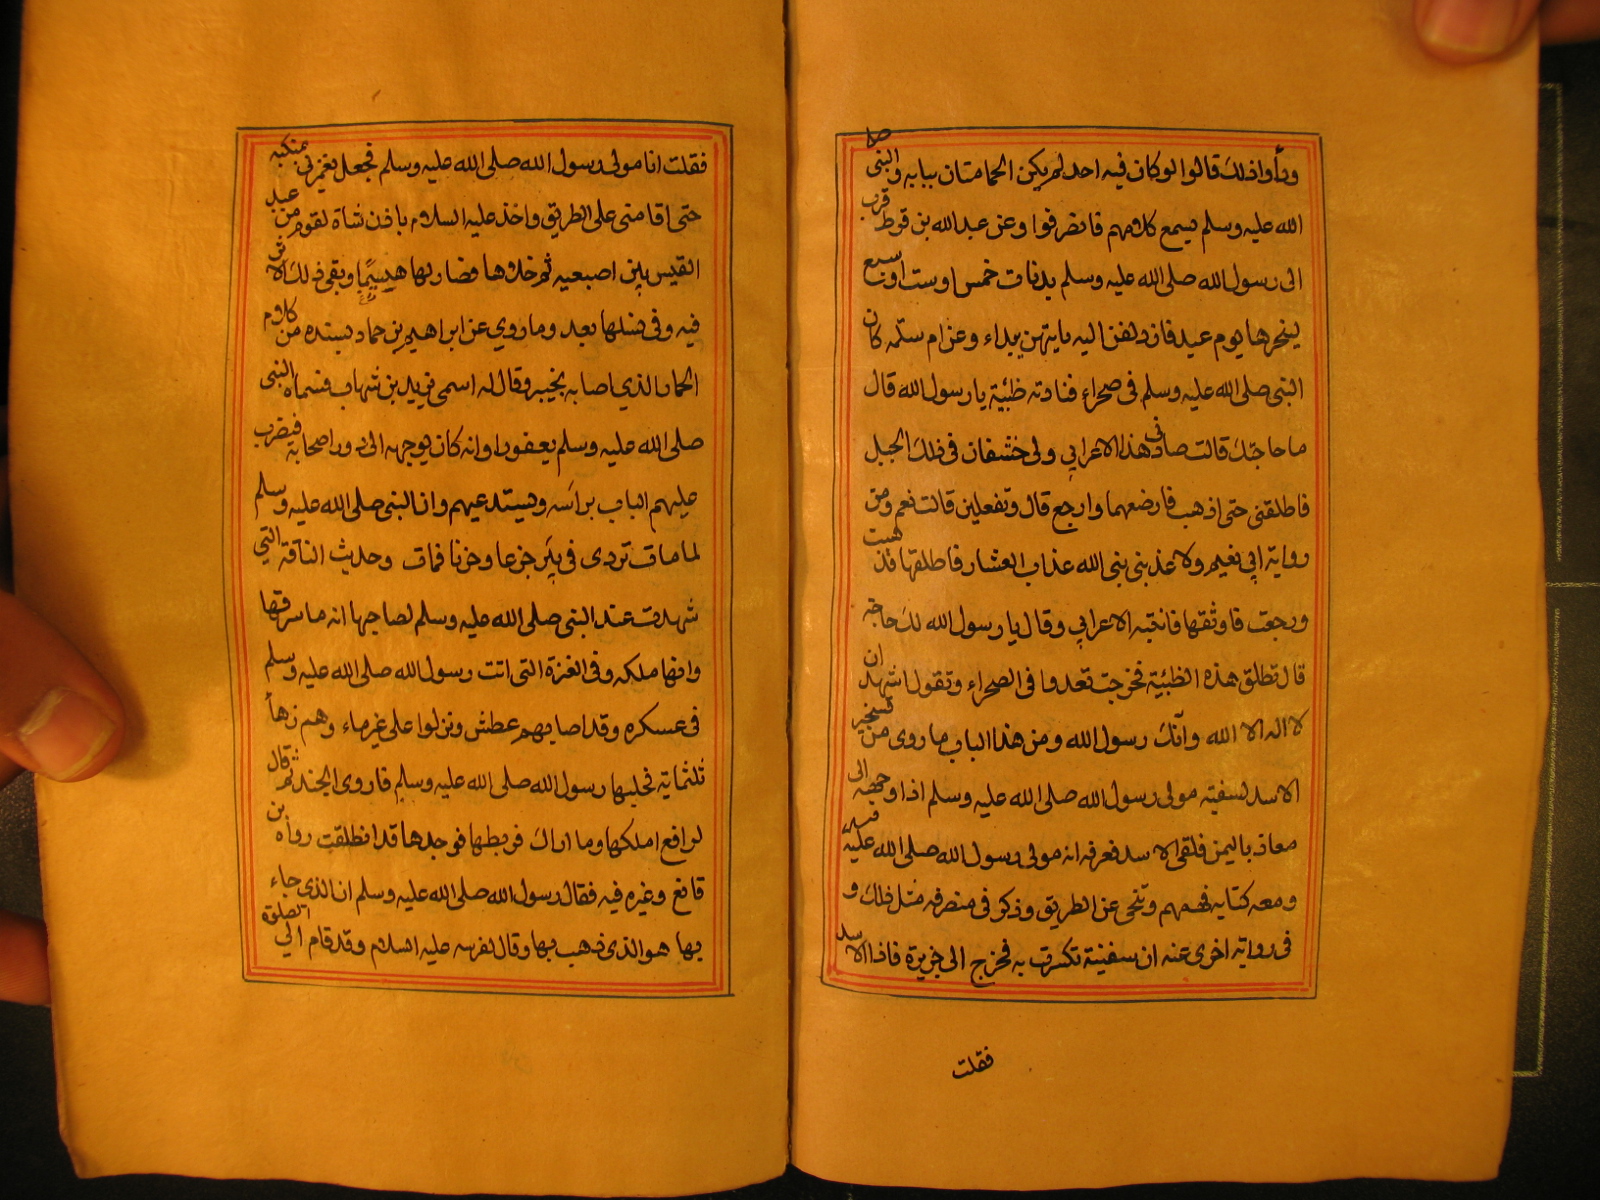 ورأوا ذلك قالوا لو كان فيه احد لم يكن الحمامتان ببابه والنبى صلى
الله عليه وسلم يسمع كلامهم فانصرفوا وعن عبد الله بن قرط قرب
الى رسول الله صلى الله عليه وسلم بدنات خمس او ست او سبع
لينحرها يوم عيد فازدلفن اليه بايتهن يبداء وعن ام سلمه كان
النبى صلى الله عليه وسلم فى صحراء فنادته ظبية يا رسول الله قال
ما حاجتك قالت صادنى هذا الاعرابي ولى خشفان فى ذلك الجبل
فاطلقنى حتى اذهب فارضعهما وارجع قال وتفعلين قالت نعم ومن
رواية ابي نعيم ولا عذبنى الله عذاب العشار فاطلقها فذهبت
ورجعت فاوثقها فانتبه الاعرابي وقال يا رسول الله لك حاجة
قال تطلق هذه الظبية فخرجت تعدوا فى الصحراء وتقول اشهد ان
لا اله الا الله وأنك رسول الله ومن هذا الباب ما روى من تسخير
الاسد لسفينه مولى رسول الله صلى الله عليه وسلم اذا وجهه الى
معاذ باليمن فلقى الاسد فعرفه انه مولى رسول الله صلى الله عليه
ومعه كتابه فهمهم وتنحى عن الطريق وذكر فى منصرفه مثل ذلك و
فى رواية اخرى عنه ان سفينة تكسرت به فخرج الى جزيرة فاذا الاسد
فقلت
فقلت انا مولى رسول الله صلى الله عليه وسلم فجعل يغمزنى بمنكبه
حتى اقامنى على الطريق واخذ عليه السلام باذن شاة لقوم من عبد
القيس بين اصبعيه ثم خلاها فصار لها ميسما وبقى ذلك الاثر
فيه وفى نسلها بعد وما روي عن ابراهيم بن حماد بسنده من كلام
الحمار الذي اصابه بخيبر وقال له اسمى يزيد بن شهاب فسماه النبى
صلى الله عليه وسلم يعفورا وانه كان يوجهه الى دور اصحابه فيضرب
عليهم الباب برأسه ويستدعيهم وان النبى صلى الله عليه وسلم
لما مات تردى فى بئر جزعا وحزنا فمات وحديث الناقة التي
شهدت عند النبى صلى الله عليه وسلم لصاحبها انه ما سرقها
وانها ملكه وفى العنزة التى اتت رسول الله صلى الله عليه وسلم
فى عسكره وقد اصابهم عطش ونزلوا على غير ماء وهم زهأ
ثلثماية فحلبها رسول الله صلى الله عليه وسلم فاروى الجند ثم قال
لرافع املكها وما اراك فربطها فوجدها قد انطلقت رواه بن
قانع وغيره فيه فقال رسول الله صلى الله عليه وسلم ان الذى جاء
بها هو الذى ذهب بها وقال لفرسه عليه السلام وقد قام الى الصلوة